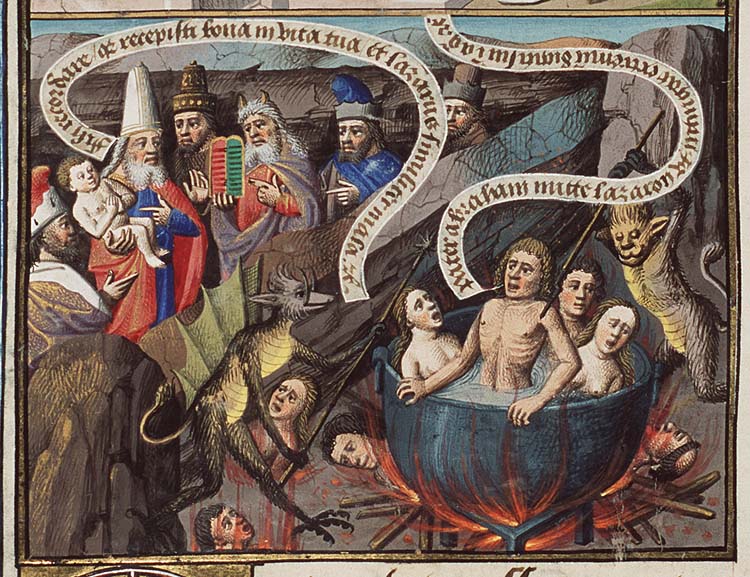 fili recordare / qr recepisti bona in vita tua et lazarus similiter mala
pater abraham mitte lazarum ut intinguat extremum digiti sui in